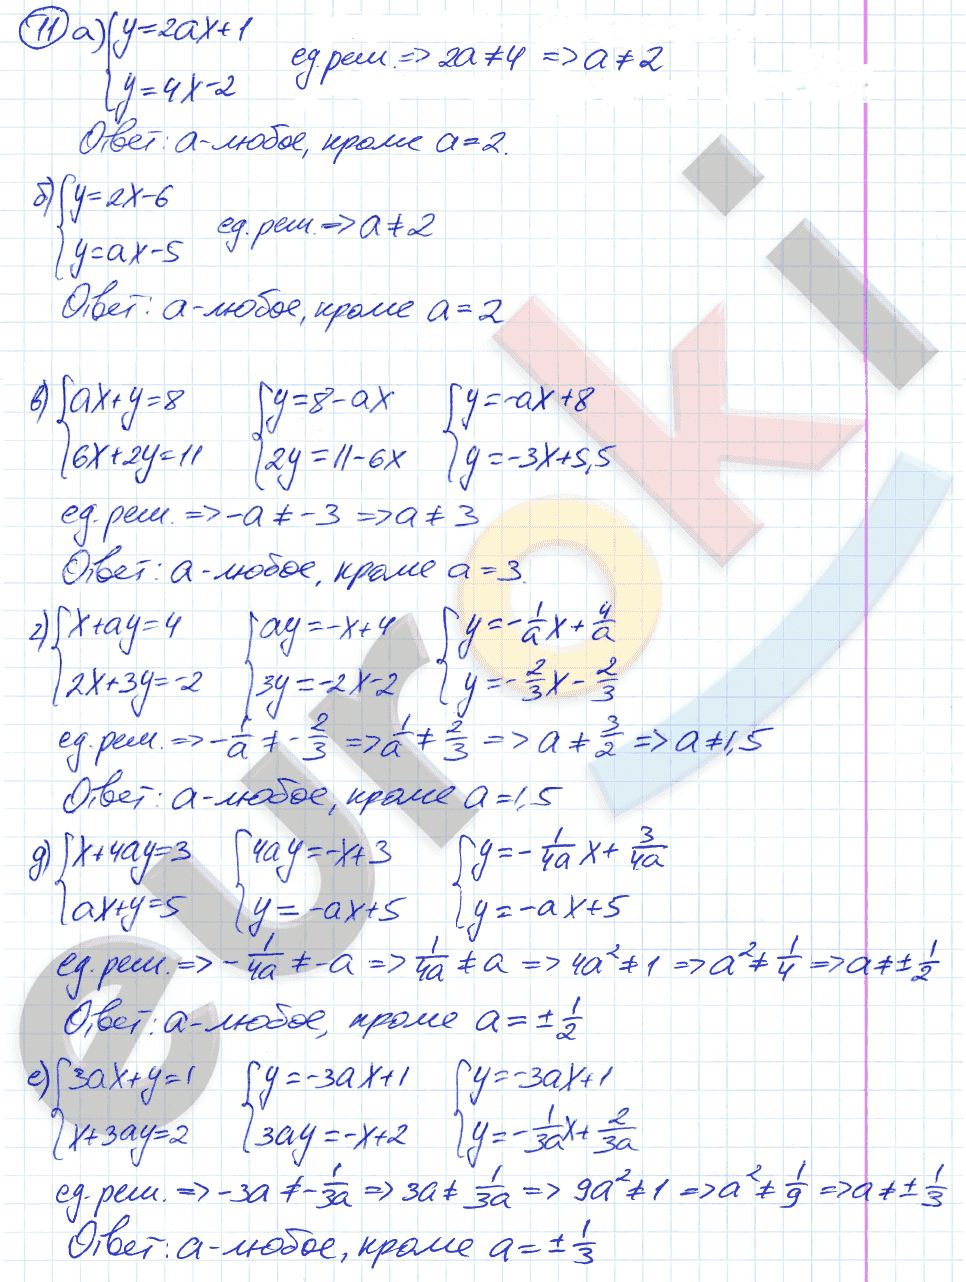 11 а) { y=2ax+1
y=4x-2 ед.реш.=> 2a≠4 => a≠2
Ответ: a-любое, кроме a=2.
б) { y=2x-6
y=ax-5 ед.реш.=> a≠2
Ответ: a-любое, кроме a=2
в) { ax+y=8 { y=8-ax { y=-ax+8
6x+2y=11 2y=11-6x y=-3x+5,5
ед.реш.=> -a≠-3 => a≠3
Ответ: a-любое, кроме a=3.
г) { x+ay=4 { ay=-x+4 { y=-1/a x+4/a
2x+3y=-2 3y=-2x-2 y=-2/3 x-2/3
ед.реш.=> -1/a≠-2/3 => 1/a≠2/3 => a≠3/2 => a≠1,5
Ответ: a-любое, кроме a=1,5
д) { x+4ay=3 { 4ay=-x+3 { y=-1/4a x+3/4a
ax+y=5 y=-ax+5 y=-ax+5
ед.реш.=> -1/4a≠-a => 1/4a≠a => 4a²≠1 => a²≠1/4 => a≠±1/2
Ответ: a-любое, кроме a=±1/2
е) { 3ax+y=1 { y=-3ax+1 { y=-3ax+1
x+3ay=2 3ay=-x+2 y=-1/3a x+2/3a
ед.реш.=> -3a≠-1/3a => 3a≠1/3a => 9a²≠1 => a²≠1/9 => a≠±1/3
Ответ: a-любое, кроме a=±1/3
euroki